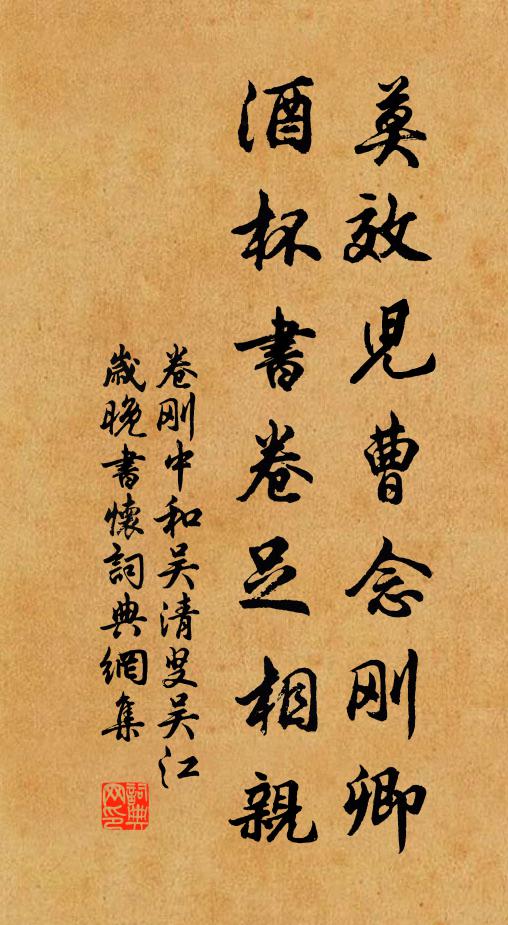 莫效兒曹念刚卿
酒杯書卷足相親
卷刚中和吴清叟吴江
歲晚書懷詞典網集
詞典
网印